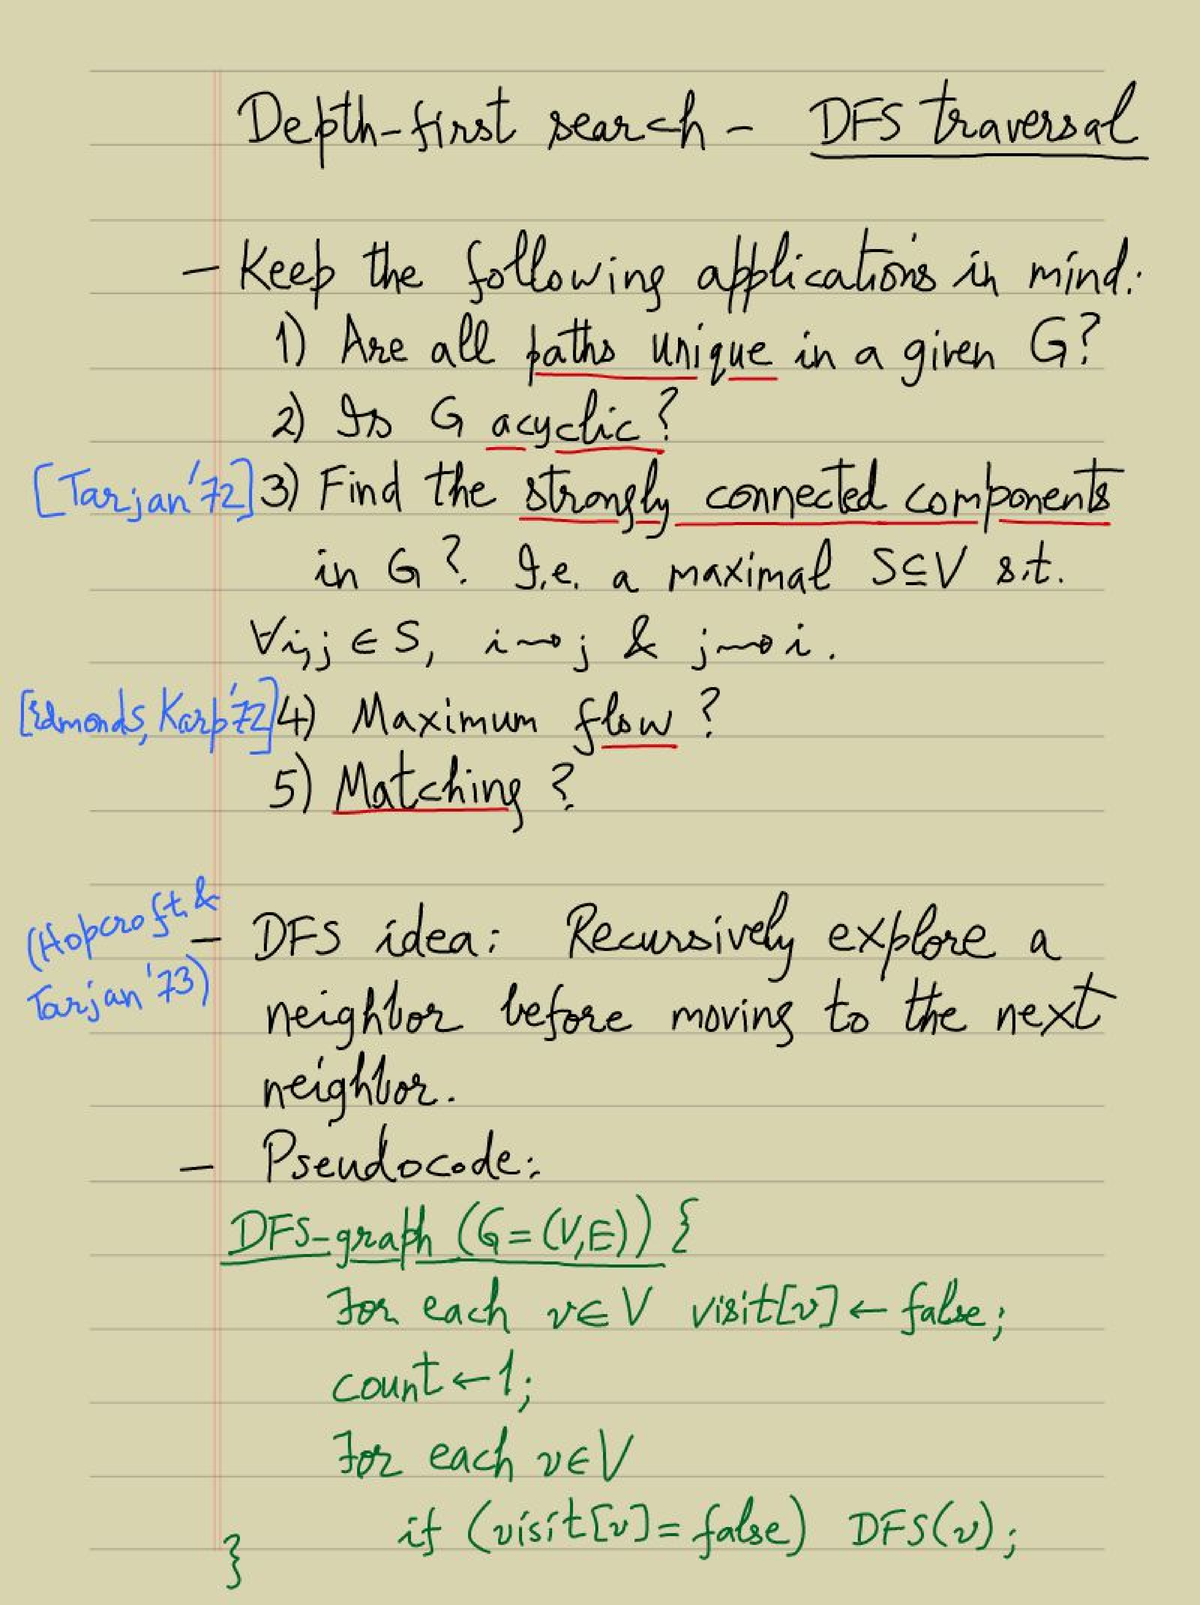 Depth-first search - DFS traversal
- Keep the following applications in mind:
1) Are all paths unique in a given G?
2) Is G acyclic?
[Tarjan'72] 3) Find the strongly connected components
in G? I.e. a maximal S⊆V s.t.
∀i,j ∈ S, i⇝j & j⇝i.
[Edmonds, Karp'72] 4) Maximum flow?
5) Matching?
(Hopcroft &
Tarjan'73)
- DFS idea: Recursively explore a
neighbor before moving to the next
neighbor.
- Pseudocode:
DFS-graph (G=(V,E)) {
For each v∈V visit[v] ← false;
count ← 1;
For each v∈V
if (visit[v] = false) DFS(v);
}